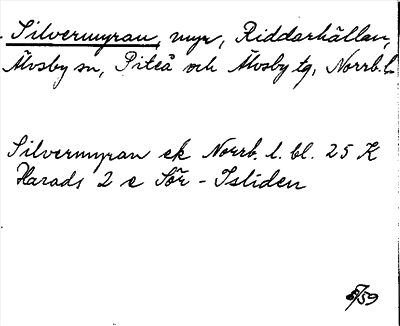 Silvermyran, myr, Riddarhällan,
Älvsby sn, Piteå och Älvsby tg, Norrb. l.
Silvermyran ek Norrb. l. bl. 25 K
Harads 2 e Sör-Isliden
/59